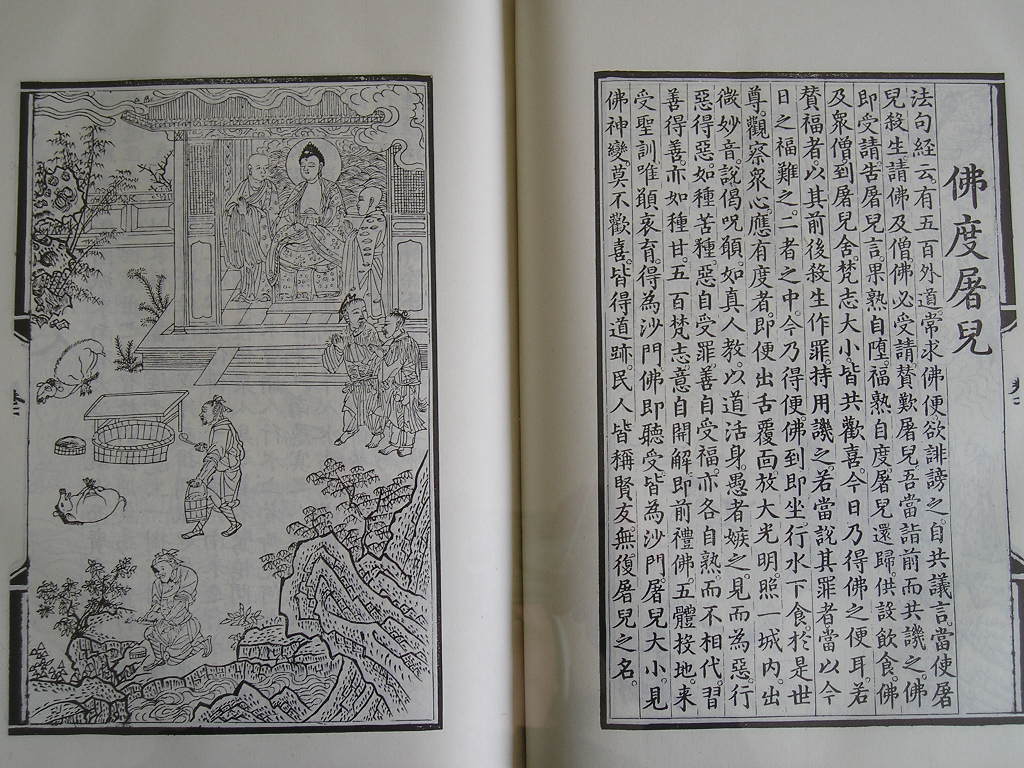 佛度屠兒
法句經云有五百外道。常求佛便欲誹謗之。自共議言。當使屠
兒殺生請佛及僧。佛必受請。贊歎屠兒。吾當詣前而共譏之。佛
即受請。告屠兒言。果熟自墮。福熟自度。屠兒還歸。供設飲食。佛
及眾僧到屠兒舍。梵志大小。皆共歡喜。今日乃得佛之便耳。若
贊福者。以其前後殺生作罪。持用譏之。若當說其罪者。當以今
日之福難之。二者之中。今乃得便。佛到即坐。行水下食。於是世
尊。觀察眾心。應有度者。即便出舌覆面。放大光明。照一城內。出
微妙音。說偈呪願。如真人教。以道活身。愚者嫉之。見而為惡。行
惡得惡。如種苦種。惡自受罪。善自受福。亦各自熟。而不相代。習
善得善。亦如種甘。五百梵志。意自開解。即前禮佛。五體投地。來
受聖訓。唯願哀育。得為沙門。佛即聽受。皆為沙門。屠兒大小。見
佛神變。莫不歡喜。皆得道跡。民人皆稱賢友。無復屠兒之名。